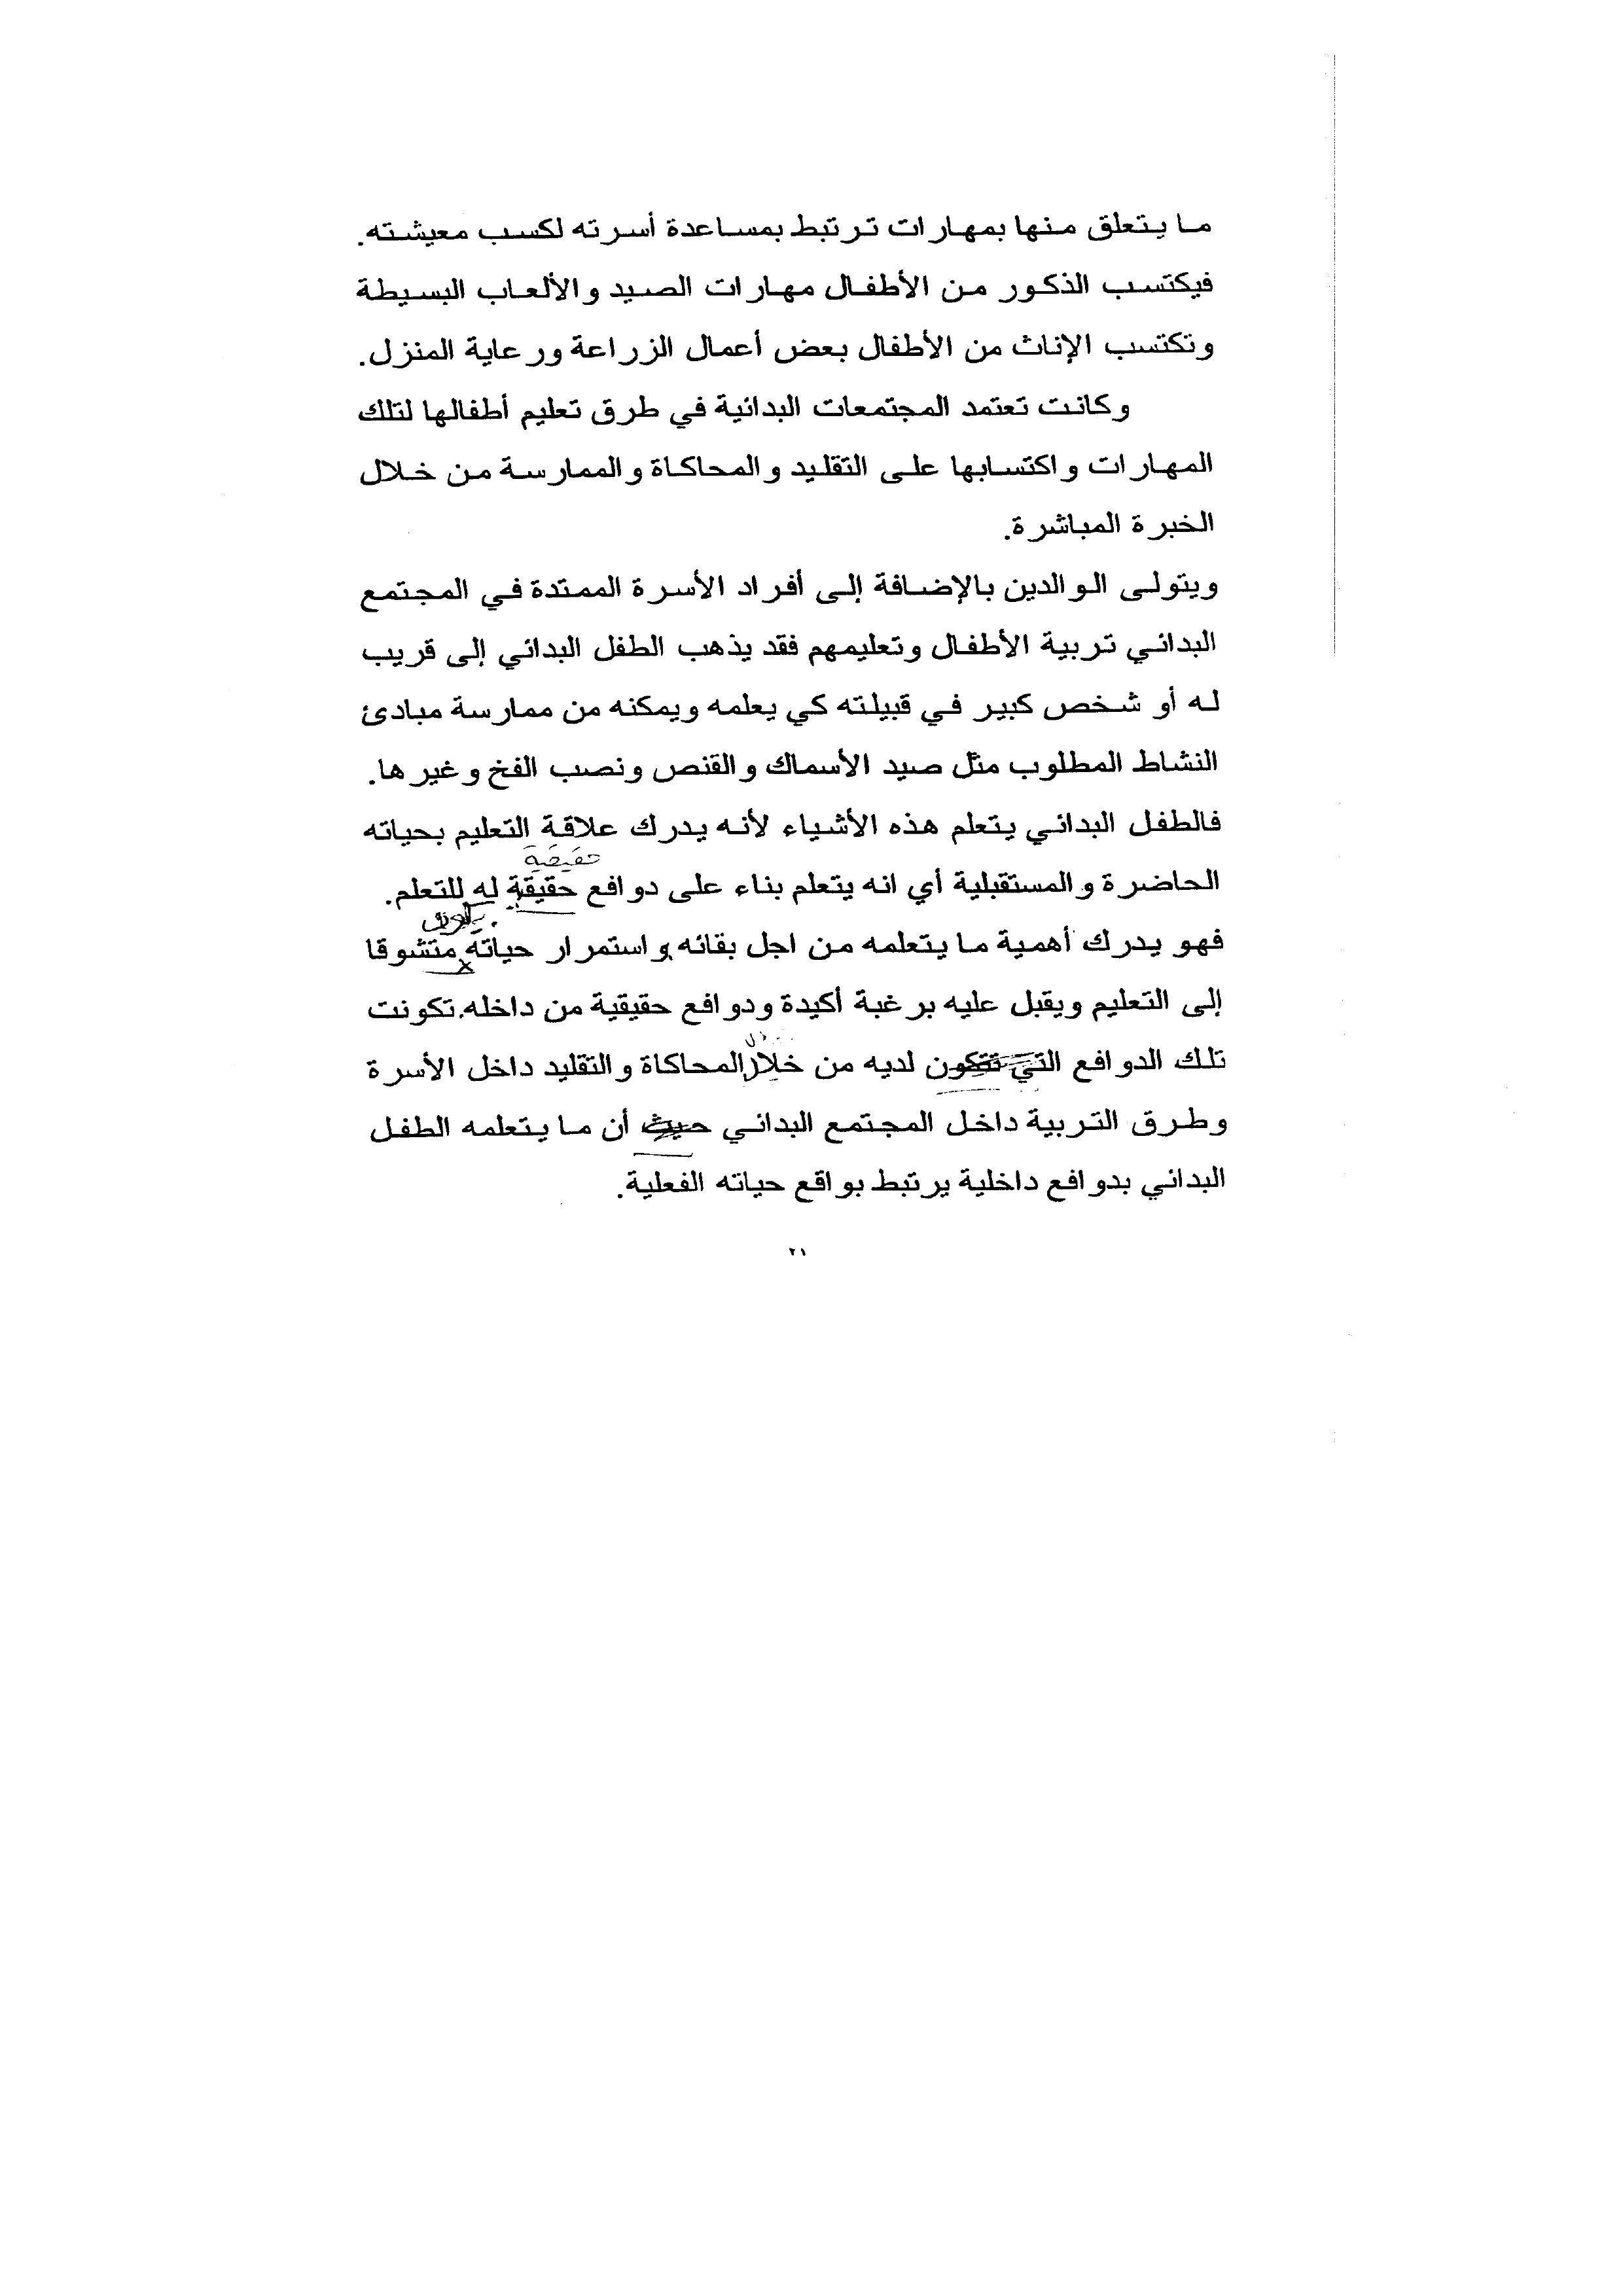 ما يتعلق منها بمهارات ترتبط بمساعدة أسرته لكسب معيشته.
فيكتسب الذكور من الأطفال مهارات الصيد والألعاب البسيطة
وتكتسب الإناث من الأطفال بعض أعمال الزراعة ورعاية المنزل.
وكانت تعتمد المجتمعات البدائية في طرق تعليم أطفالها لتلك
المهارات واكتسابها على التقليد والمحاكاة والممارسة من خلال
الخبرة المباشرة.
ويتولى الوالدين بالإضافة إلى أفراد الأسرة الممتدة في المجتمع
البدائي تربية الأطفال وتعليمهم فقد يذهب الطفل البدائي إلى قريب
له أو شخص كبير في قبيلته كي يعلمه ويمكنه من ممارسة مبادئ
النشاط المطلوب مثل صيد الأسماك والقنص ونصب الفخ وغيرها.
فالطفل البدائي يتعلم هذه الأشياء لأنه يدرك علاقة التعليم بحياته
الحاضرة والمستقبلية أي انه يتعلم بناء على دوافع حقيقة له للتعلم.
فهو يدرك أهمية ما يتعلمه من اجل بقائه واستمرار حياته متشوقا
إلى التعليم ويقبل عليه برغبة أكيدة ودوافع حقيقية من داخله. تكونت
تلك الدوافع التي تتكون لديه من خلال المحاكاة والتقليد داخل الأسرة
وطرق التربية داخل المجتمع البدائي حيث أن ما يتعلمه الطفل
البدائي بدوافع داخلية يرتبط بواقع حياته الفعلية.
٢١